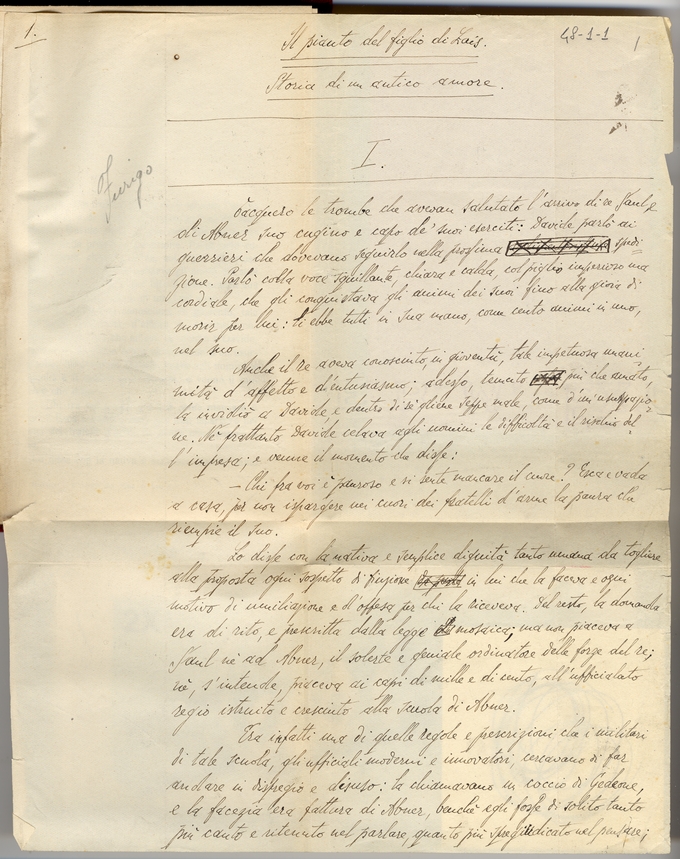 1.
48-1-1
Il pianto del figlio di Lais.
Storia di un antico amore.
Furigo
I.
Tacquero le trombe che avevan salutato l'arrivo di re Saul e
di Abner suo cugino e capo de' suoi eserciti: Davide parlò ai
guerrieri che dovevano seguirlo nella prossima spedi-
zione. Parlò colla voce squillante, chiara e calda, col piglio imperioso ma
cordiale, che gli conquistava gli animi dei suoi fino alla gioia di
morir per lui; li ebbe tutti in sua mano, come cento animi in uno,
nel suo.
Anche il re aveva conosciuto, in gioventù, tale impetuosa unani-
mità d'affetto e d'entusiasmo; adesso, temuto più che amato,
la invidiò a Davide, e dentro di sè gliene seppe male, come d'un'usurpazio-
ne. Nè frattanto Davide celava agli uomini le difficoltà e il rischio del-
l'impresa; e venne il momento che disse:
– Chi fra voi è pauroso e si sente mancare il cuore? Esca e vada
a casa, per non ispargere nei cuori dei fratelli d'arme la paura che
riempie il suo.
Lo disse con la nativa e semplice dignità tanto umana da togliere
alla proposta ogni sospetto di finzione in lui che la faceva e ogni
motivo di umiliazione e d'offesa per chi la riceveva. Del resto, la domanda
era di rito, e prescritta dalla legge mosaica; ma non piaceva a
Saul nè ad Abner, il solerte e geniale ordinatore delle forze del re;
nè, s'intende, piaceva ai capi di mille e di cento, all'ufficialato
regio istruito e cresciuto alla scuola di Abner.
Era infatti una di quelle regole e prescrizioni che i militari
di tale scuola, gli ufficiali moderni e innovatori, cercavano di far
andare in dispregio e disuso: la chiamavano un coccio di Gedeone,
e la facezia era fattura di Abner, benchè egli fosse di solito tanto
più cauto e ritenuto nel parlare, quanto più spregiudicato nel pensare;